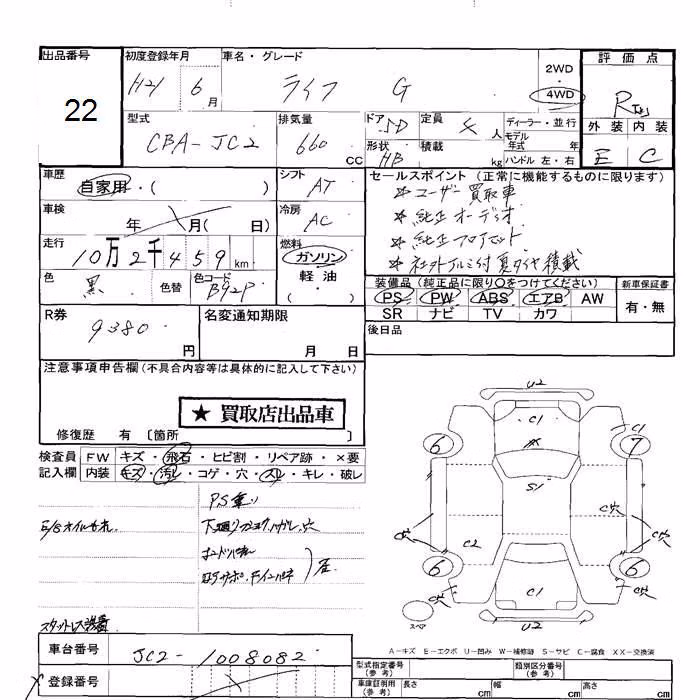 出品番号
22
初度登録年月
H21 6月
車名・グレード
ライフ G
2WD
・
4WD
評価点
R
外装 内装
E C
型式
CBA-JC2
排気量
660 cc
ドア 5D
形状 HB
定員 4人
積載 kg
ディーラー・並行
モデル
年式 年
ハンドル 左・右
車歴
自家用・( )
シフト
AT
車検
年 月( 日)
冷房
AC
走行
10万2千459km
燃料
ガソリン
・
軽油
( )
色
黒
色替
色コード
B92P
セールスポイント (正常に機能するものに限ります)
☆ユーザー買取車
☆純正オーディオ
☆純正フロアマット
☆社外アルミ付夏タイヤ積載
装備品(純正品に限り○をつけてください)
PS PW ABS エアB AW
SR ナビ TV カワ
新車保証書
有・無
後日品
R券
9380円
名変通知期限
月 日
注意事項申告欄(不具合内容等は具体的に記入して下さい)
★ 買取店出品車
修復歴 有 〔箇所 〕
検査員 FW キズ・飛石・ヒビ割・リペア跡・×要
記入欄 内装 キズ・汚レ・コゲ・穴・スレ・キレ・破レ
PS重り
E/Gオイルもれ
スタットレス装着
U2
C1
C1
6
7
S1
C穴
C穴
C穴
C2
6
6
C穴
C1
C穴
U2
スペア
A-キズ E-エクボ U-凹み W-補修跡 S-サビ C-腐食 XX-交換済
車台番号
JC2-1008082
登録番号
型式指定番号
(参考)
類別区分番号
(参考)
車庫証明用
(参考)
長さ cm
幅 cm
高さ cm